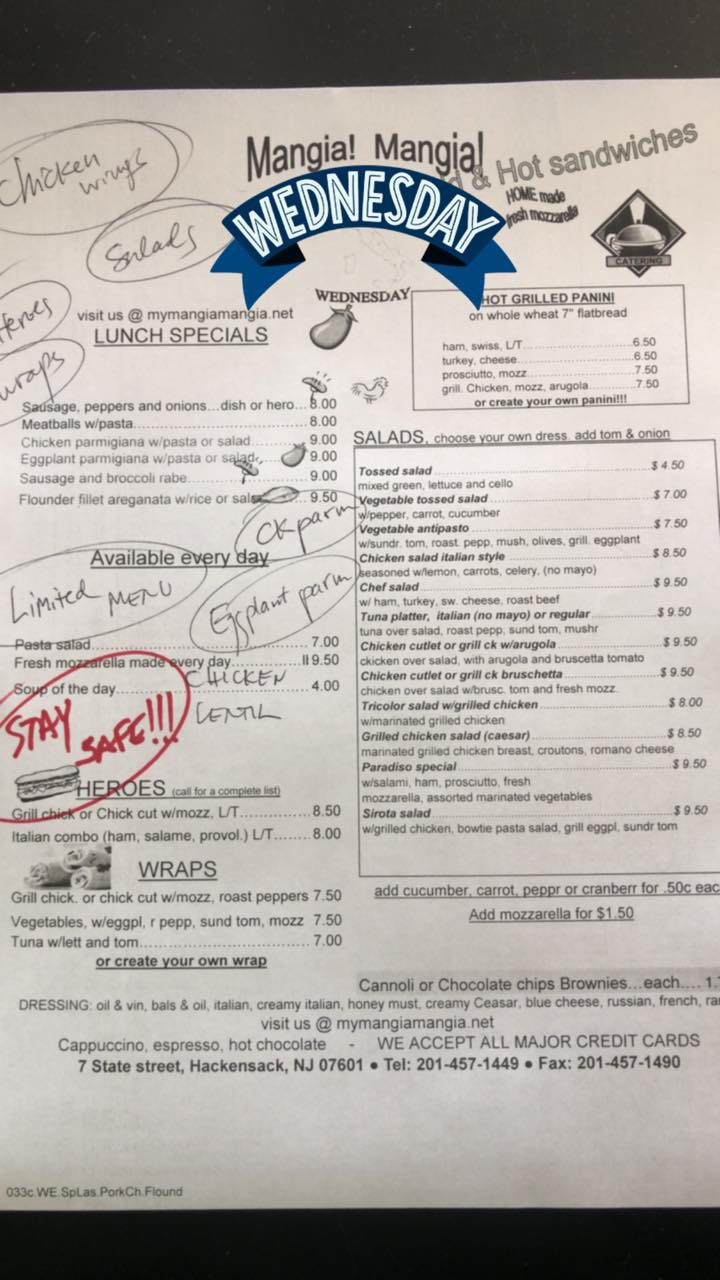 Chicken wings
Mangia! Mangia!
& Hot sandwiches
HOME made
fresh mozzarella
WEDNESDAY
Salads
CATERING
Heroes
wraps
visit us @ mymangiamangia.net
LUNCH SPECIALS
WEDNESDAY
Sausage, peppers and onions...dish or hero... 8.00
Meatballs w/pasta 8.00
Chicken parmigiana w/pasta or salad 9.00
Eggplant parmigiana w/pasta or salad 9.00
Sausage and broccoli rabe 9.00
Flounder fillet areganata w/rice or salad 9.50
CK parm
Available every day
Limited MENU
Eggplant parm
Pasta salad 7.00
Fresh mozzarella made every day 9.50
Soup of the day 4.00
CHICKEN
LENTIL
STAY SAFE!!!
HEROES (call for a complete list)
Grill chick or Chick cut w/mozz, L/T 8.50
Italian combo (ham, salame, provol.) L/T 8.00
WRAPS
Grill chick. or chick cut w/mozz, roast peppers 7.50
Vegetables, w/eggpl, r pepp, sund tom, mozz 7.50
Tuna w/lett and tom 7.00
or create your own wrap
HOT GRILLED PANINI
on whole wheat 7" flatbread
ham, swiss, L/T 6.50
turkey, cheese 6.50
prosciutto, mozz 7.50
grill. Chicken, mozz, arugola 7.50
or create your own panini!!!
SALADS, choose your own dress. add tom & onion
Tossed salad $ 4.50
mixed green, lettuce and cello
Vegetable tossed salad $ 7.00
w/pepper, carrot, cucumber
Vegetable antipasto $ 7.50
w/sundr. tom, roast. pepp, mush, olives, grill. eggplant
Chicken salad italian style $ 8.50
seasoned w/lemon, carrots, celery, (no mayo)
Chef salad $ 9.50
w/ ham, turkey, sw. cheese, roast beef
Tuna platter, italian (no mayo) or regular $ 9.50
tuna over salad, roast pepp, sund tom, mushr
Chicken cutlet or grill ck w/arugola $ 9.50
ckicken over salad, with arugola and bruscetta tomato
Chicken cutlet or grill ck bruschetta $ 9.50
chicken over salad w/brusc. tom and fresh mozz.
Tricolor salad w/grilled chicken $ 8.00
w/marinated grilled chicken
Grilled chicken salad (caesar) $ 8.50
marinated grilled chicken breast, croutons, romano cheese
Paradiso special $ 9.50
w/salami, ham, prosciutto, fresh
mozzarella, assorted marinated vegetables
Sirota salad $ 9.50
w/grilled chicken, bowtie pasta salad, grill eggpl, sundr tom
add cucumber, carrot, peppr or cranberr for .50c eac
Add mozzarella for $1.50
Cannoli or Chocolate chips Brownies...each.... 1.
DRESSING: oil & vin, bals & oil, italian, creamy italian, honey must, creamy Ceasar, blue cheese, russian, french, ra
visit us @ mymangiamangia.net
Cappuccino, espresso, hot chocolate - WE ACCEPT ALL MAJOR CREDIT CARDS
7 State street, Hackensack, NJ 07601 • Tel: 201-457-1449 • Fax: 201-457-1490
033c.WE.SpLas.PorkCh.Flound